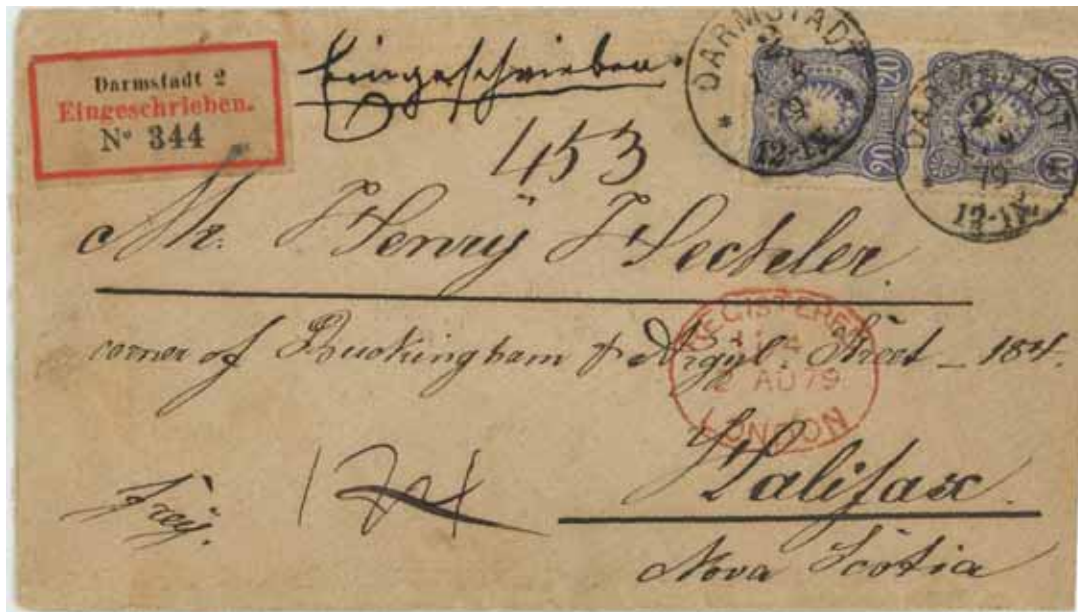 Darmstadt 2
Eingeschrieben.
Nº 344
Eingeschrieben.
453
DARMSTADT
79
12-1
20
DARMSTADT
2.
79
12-1
Mr. Henry Hechler.
corner of Buckingham & Argyl. Street _ 184.
REGISTERED
AU 79
LONDON
Halifax.
Nova Scotia